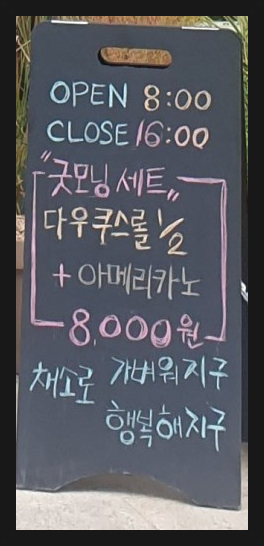 OPEN 8:00
CLOSE 16:00
"굿모닝 세트"
다우쿠스롤 1/2
+ 아메리카노
8,000원
채소로 가벼워지구
행복해지구